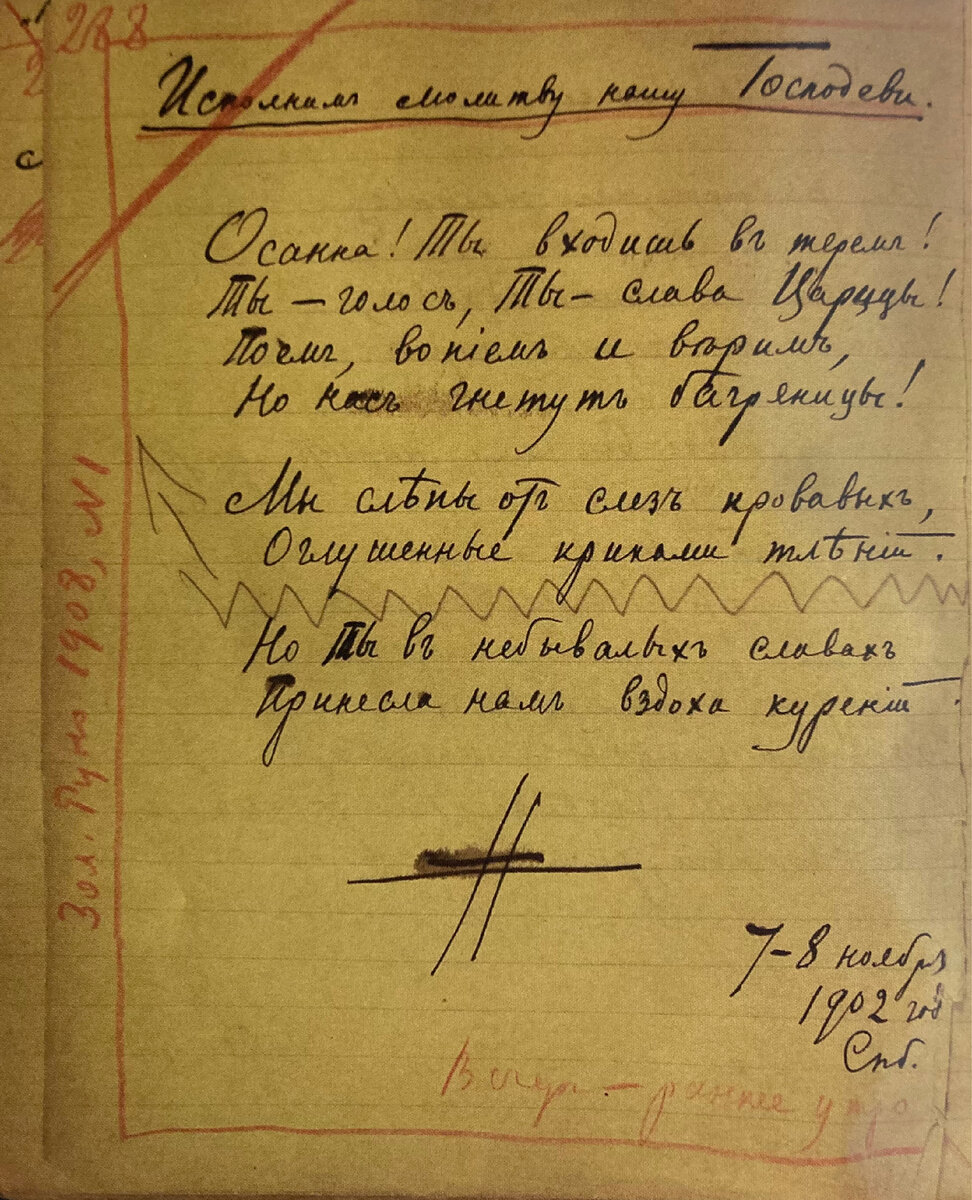 288
Исполнимъ молитву нашу Господеви.
Осанна! Ты входишь въ теремъ!
Ты – голосъ, Ты – слава Царицы!
Поемъ, вопіемъ и вѣримъ,
Но насъ гнетутъ багряницы!
Мы слѣпы отъ слезъ кровавыхъ,
Оглушенные криками тлѣній.
Но Ты въ небывалыхъ славахъ
Принесла намъ вздоха куреній.
Зол. Руно 1908, N 1
7–8 ноября
1902 год
Спб.
– раннее утро